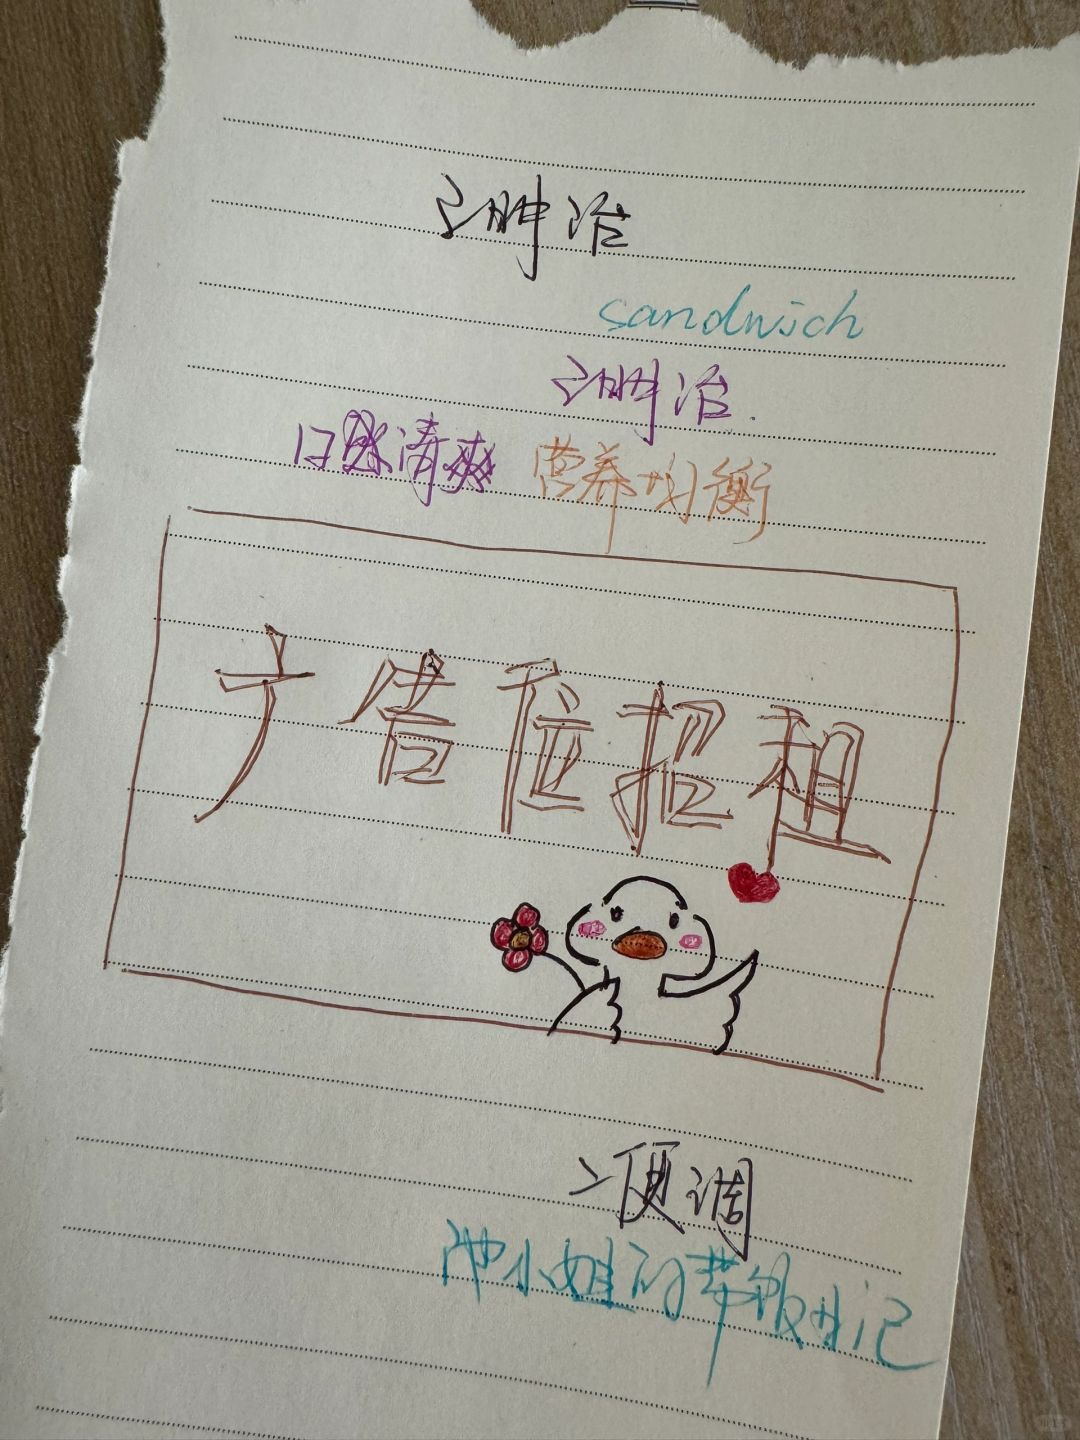 三明治
sandwich
三明治.
口感清爽 营养均衡
广告位招租
二便调
小姐的带饭日记